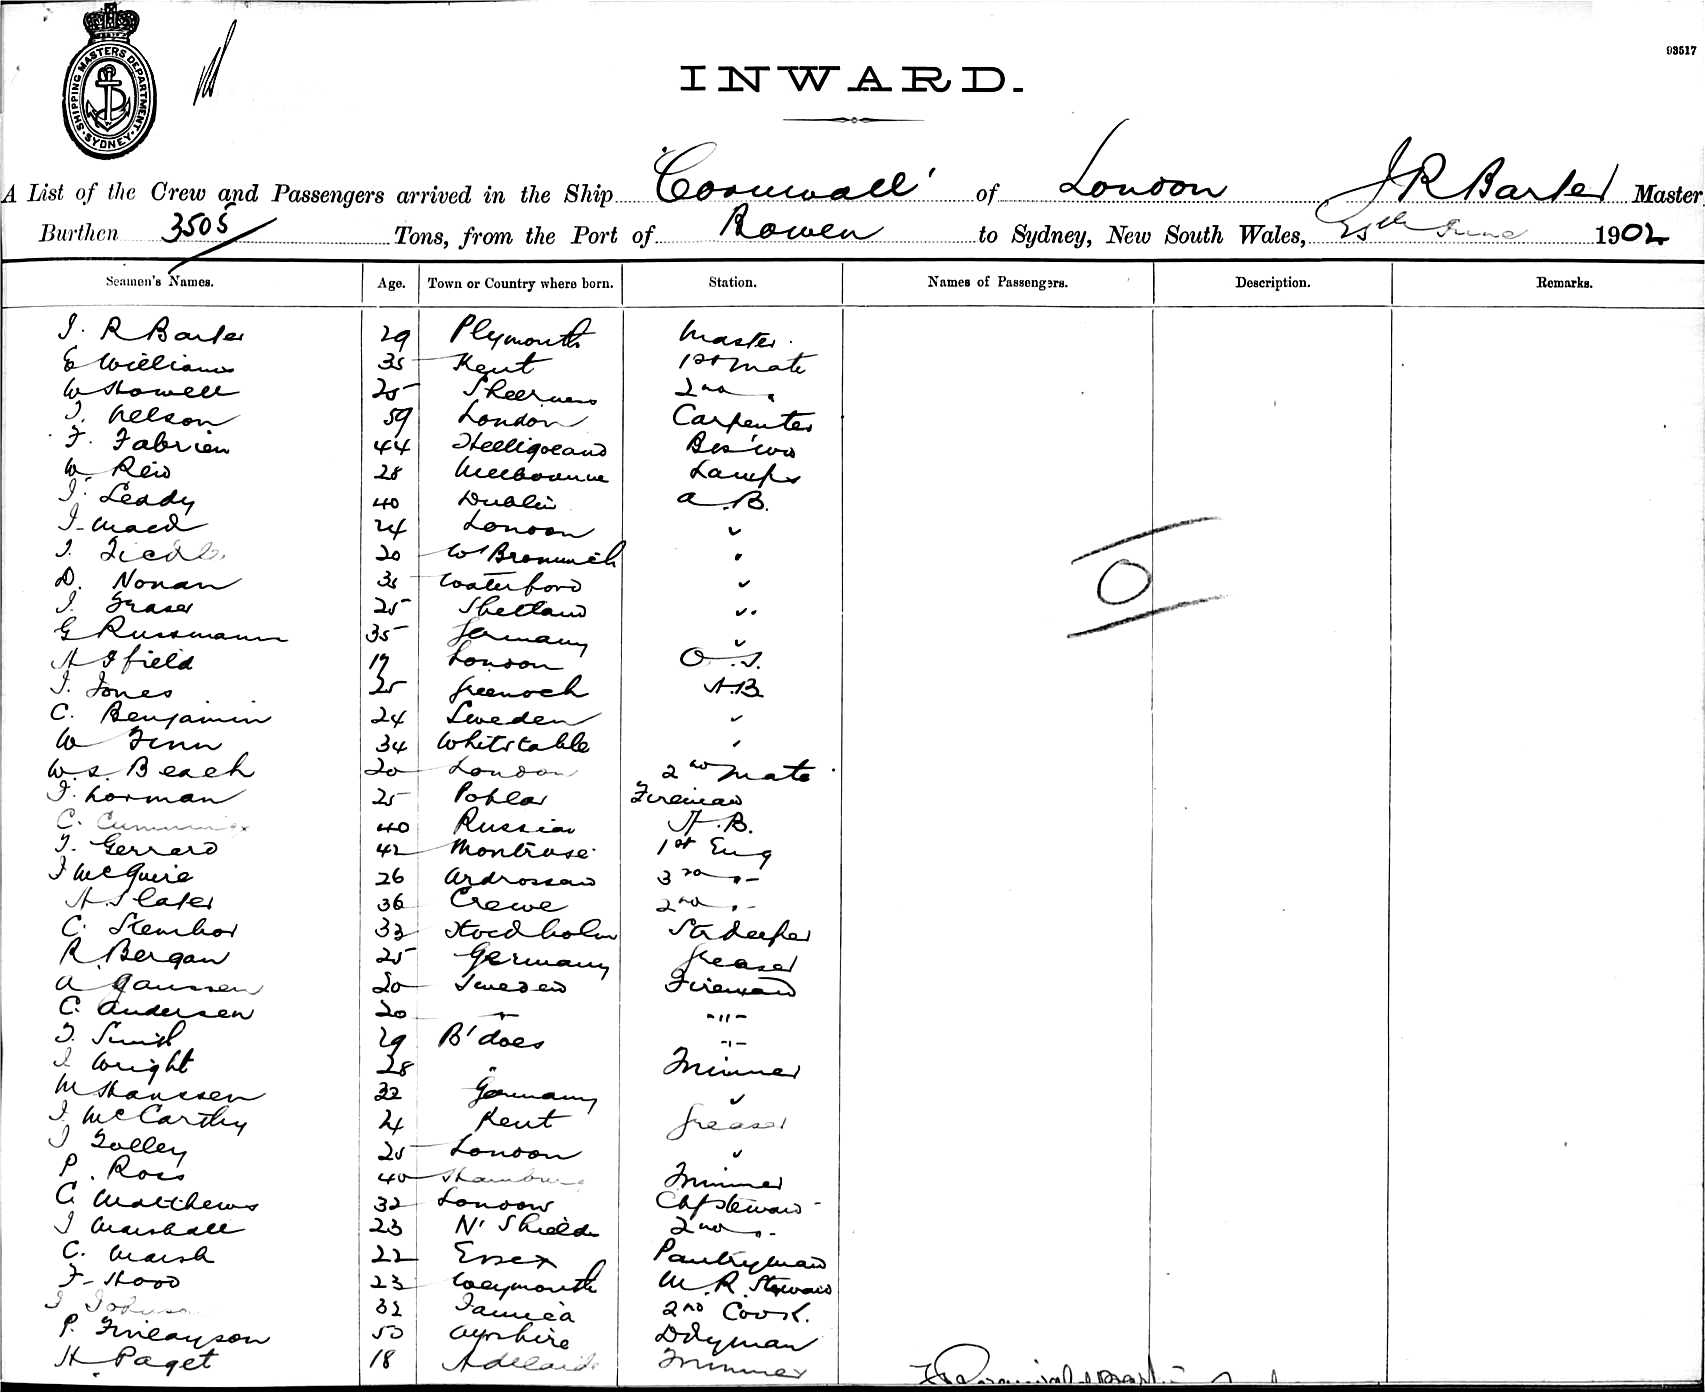 SHIPPING MASTERS DEPARTMENT. SYDNEY.
93517
INWARD.
A List of the Crew and Passengers arrived in the Ship "Cornwall" of London J R Barter Master
Burthen 3505 Tons, from the Port of Bowen to Sydney, New South Wales, 25th June 1902
Seamen's Names. Age. Town or Country where born. Station. Names of Passengers. Description. Remarks.
J. R Barter 29 Plymouth Master
E Williams 35 Kent 1st Mate
W Howell 25 Sheerness 2nd "
J. Nelson 59 London Carpenter
F. Fabrien 44 Heligoland Bos'un
W Reid 28 Melbourne Lamps
J. Leady 40 Dublin A.B.
J. 24 London "
J. 20 W' Bromwich "
D. Nonan 31 Waterford "
J. Fraser 25 Shetland "
G Russmann 35 Germany "
A Ifield 19 London O.S.
J. Jones 25 Greenock A.B.
C. Benjamin 24 Sweden "
W Finn 34 Whitstable "
W.S. Beach 20 London 2nd Mate
J. Lorman 25 Poplar Fireman
C. 40 Russia A.B.
J. Gerrard 42 Montrose 1st Eng
J McGuire 26 Ardrossan 3rd "
A Slater 36 Crewe 2nd "
C. 33 Stockholm
R. Bergan 25 Germany Greaser
A Janssen 20 Sweden Fireman
C. Andersen 20 " "
J. Smith 29 B'does "
J Wright 28 " Trimmer
M Hanssen 32 Germany "
J. McCarthy 24 Kent Greaser
J Tolley 25 London "
P. Ross 40 Hamburg Trimmer
C. Matthews 32 London Chf Steward
J Marshall 23 N' Shields 2nd "
C. Marsh 22 Essex Pantryman
F. Hood 23 Weymouth M.R. Steward
J Johnson 32 Jamica 2nd Cook.
P. Finlayson 50 Ayrshire Dkyman
H Paget 18 Adelaide Trimmer
0